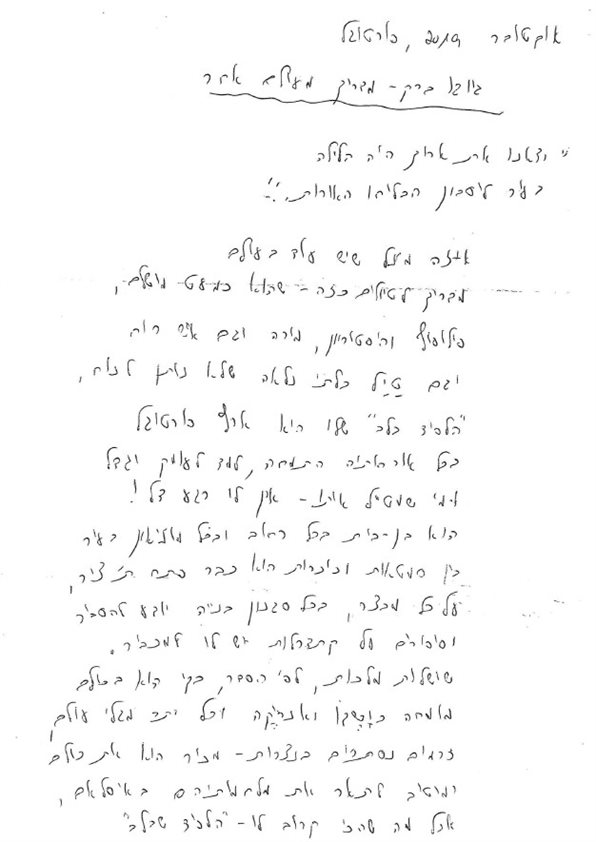 אוקטובר 2019, פורטוגל
גיורא ברק - מדריך מעולם אחר
"יצאנו אט ארוך היה הלילה
בעיר ליסבון הבליחו האורות..."
איזה מזל שיש עוד בעולם
מדריך לטיולים כזה - שהוא כמעט מושלם,
פילוסוף והיסטוריון, מורה וגם איש רוח
וגם טַיָּל בלתי נלאה שלא נותן לנוח,
"הלפיד בלב" שלו היא ארץ פורטוגל
בכל אורחותיה התמחה, למד לעומק וגדל
ומי שמטייל איתו - אין לו רגע דל!
הוא בן-בית בכל רחוב ובכל מוזיאון בעיר
בין סמטאות וכיכרות הוא כבר פתח ת'ציר,
על כל מבצר, בכל סגנון בנייה יודע להסביר
וסיפורים על קתדרלות יש לו למכביר.
שושלות מלכות, לפי הסדר, בקי הוא בכולם
מומחה בוסקו ואנריקה וכל יתר מגלי עולם,
זרמים נסתרים בנצרות - מכיר הוא את כולם
ומיטיב לתאר את מלחמותיהם באיסלאם,
אבל מה שהכי קרוב לו - "הלפיד שבלב"